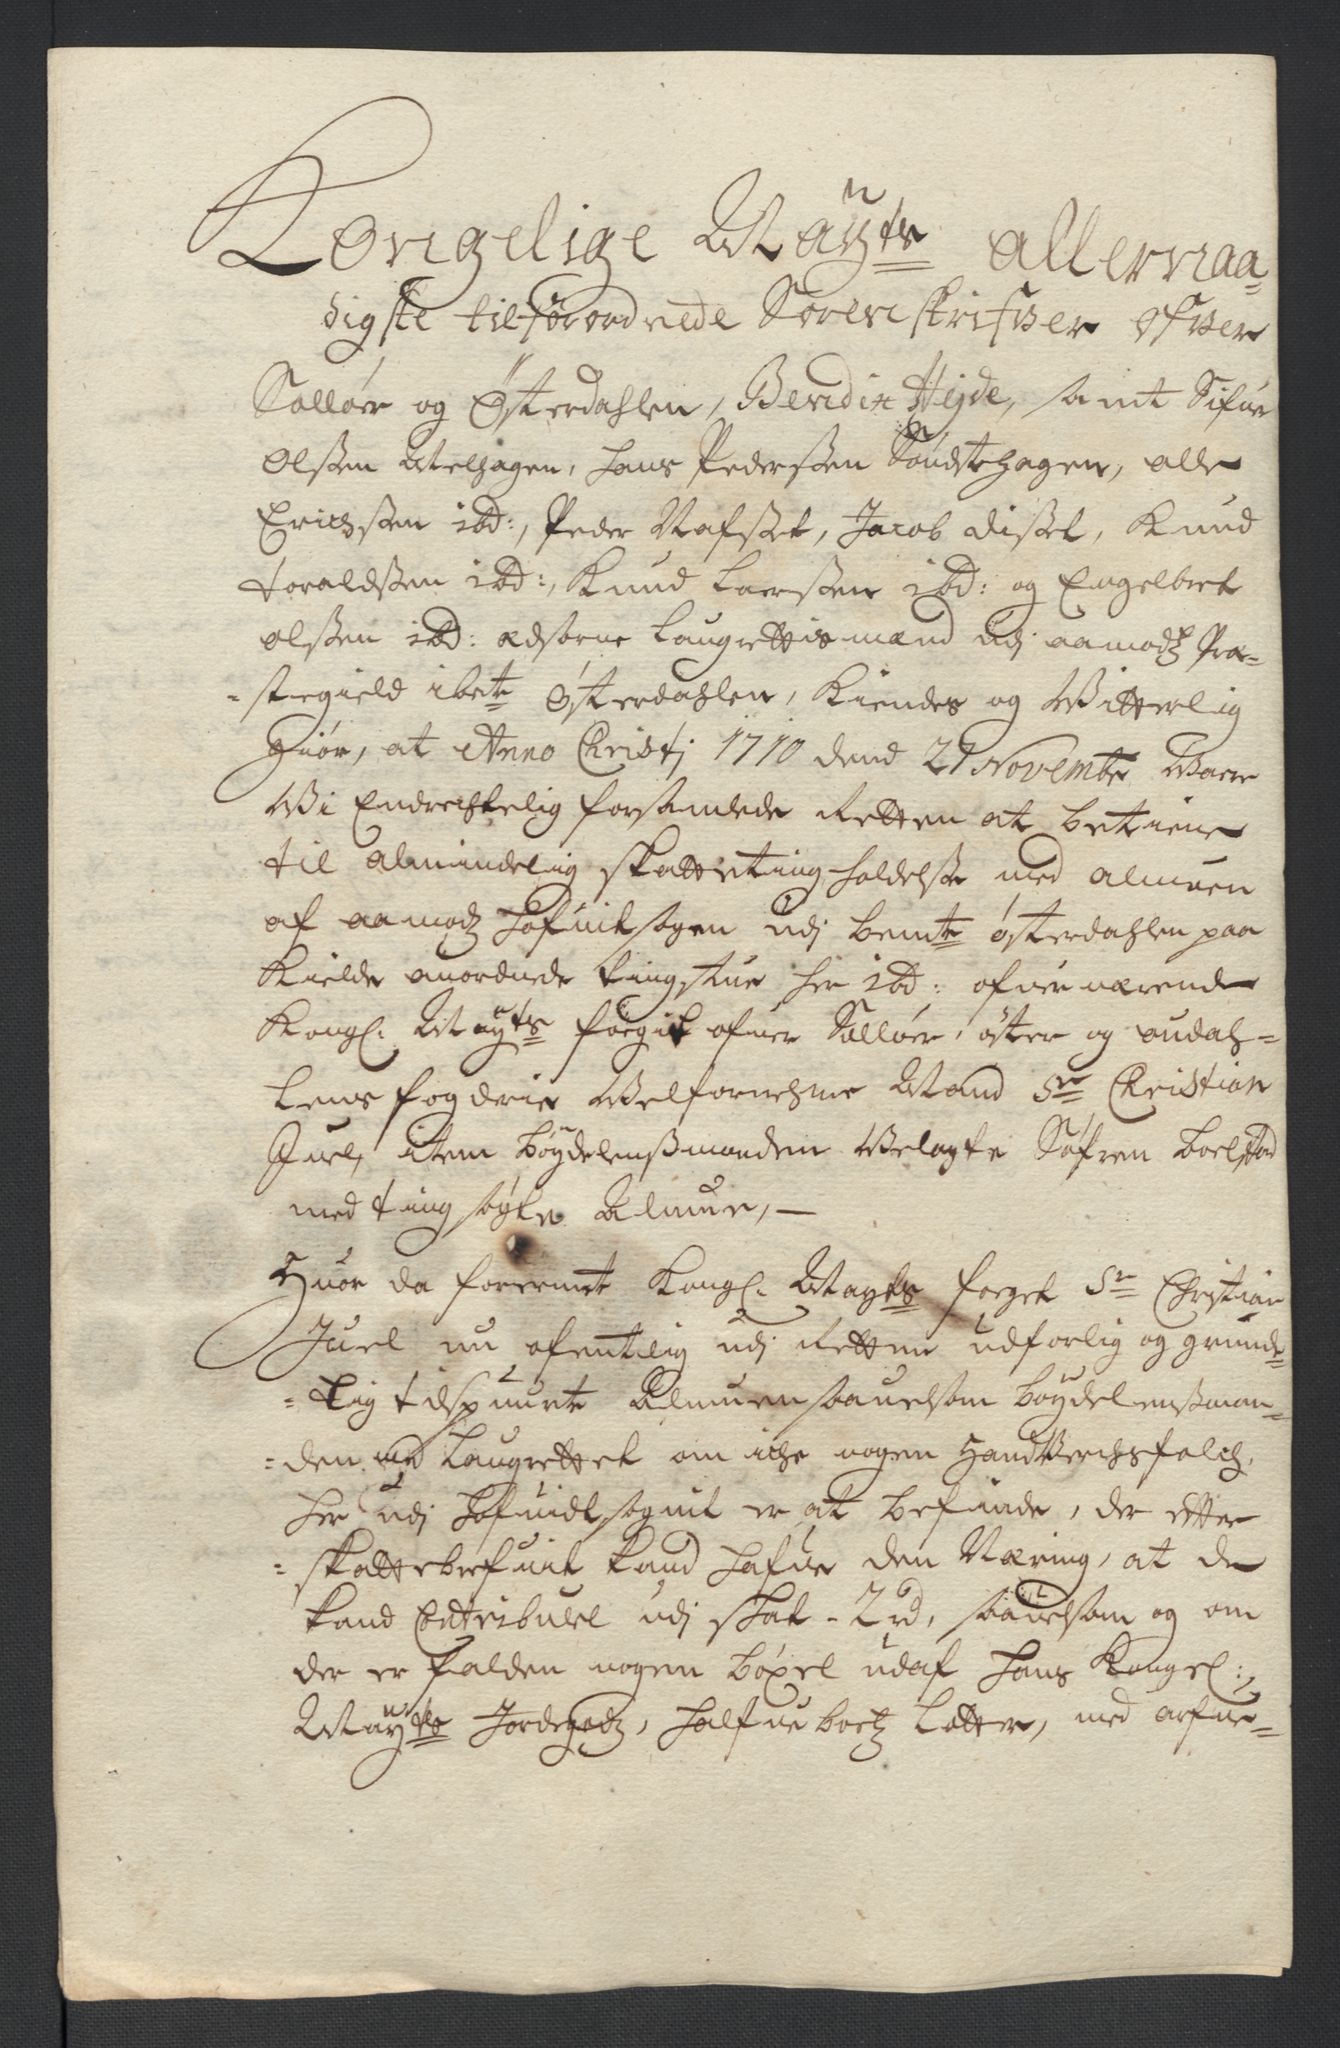 Kongelige Maÿts allernaa-
digste tilforordnede Sorenskrifver ofver
Solløer og Østerdahlen, Bendix Hejde, samt Sifuer
Olssen Melhagen, Hans Pederssen Sundstehagen, Olle
Erichssen ibd:, Peder Nafset, Jacob Disset, Knud
Toraldssen ibd:, Knud Larssen ibd: og Engelbret
Olssen ibd: Edsorne Laugrettismænd udj Aamodtz Præ-
-stegield i bemte Østerdahlen, Kiendes og Witterlig
Giør, at Anno Christj 1710 dend 27 Novembr Ware
Wi Endrechtelig forsamlede Retten at betiene
til Almindelig Skatteting holdelsse med Almuen
af Aamodtz Hofuit sogen udj bemte Østerdahlen paa
Kielde anordnede tingstue her ibd: ofuerværende
Kongl. Maÿts fogit ofuer Solløer, Øster og Oudah-
lens fogderie Welfornehme Mand Sr Christian
Juel, item bøÿdelenssmanden Welagte Søfren Boelstad
med ting søgte Almue, —
Huor da forermte Kongl. Mayts foget Sr Christian
Juel nu ofentlig udj Retten udforlig og grunde-
-lig tilspuurte Almuen saauelsom bøÿdelenssman-
-den og Laugrettet om iche nogen Handtverchsfolch
her udj Hofuidt sognit er at befinde, der efter
-Skattebrefuit kand hafue den Næring, at de
kand Contribuere udj skat - 2 rd, saauelsom og om
der er falden nogen bøxel udaf Hans Kongel:
Maÿts Jordegodtz, halfue boetz Lotter, med arfue-